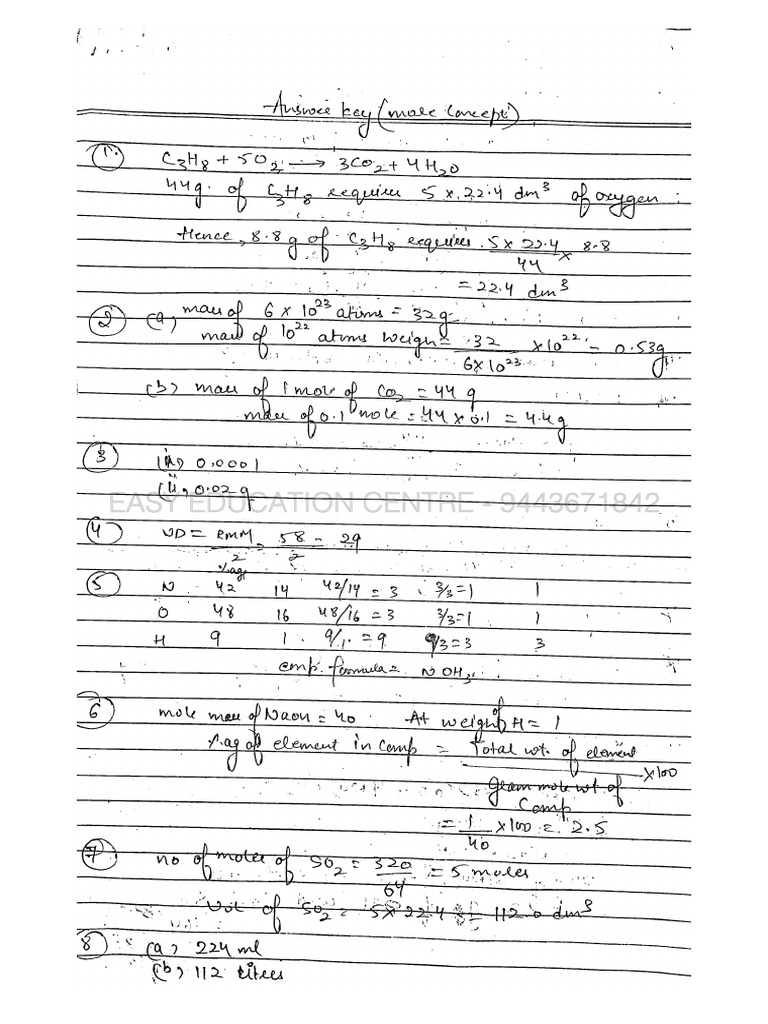 Answer key (mole concept)
1. C3H8 + 5O2 → 3CO2 + 4H2O
44g. of C3H8 requires 5 x 22.4 dm³ of oxygen :
Hence, 8.8 g of C3H8 requires 5 x 22.4 / 44 x 8.8
= 22.4 dm³
2 (a) mass of 6 x 10²³ atoms = 32g
mass of 10²² atoms weigh = 32 / 6x10²³ x 10²² = 0.53g
(b) mass of 1 mole of CO2 = 44 g
mass of 0.1 mole = 44 x 0.1 = 4.4 g
3 (i) 0.0001
(ii) 0.02 g
EASY EDUCATION CENTRE - 9443671842
4 VD = RMM / 2 = 58 / 2 = 29
%age
5 N 42 14 42/14 = 3 3/3 = 1 1
O 48 16 48/16 = 3 3/3 = 1 1
H 9 1 9/1 = 9 9/3 = 3 3
emp. formula = NOH3
6 mole mass of NaOH = 40 At weight of H = 1
%ag of element in comp = Total wt. of element / Gram mole wt. of Comp x100
= 1 / 40 x 100 = 2.5
7 no of moles of SO2 = 320 / 64 = 5 moles
Vol of SO2 = 5 x 22.4 = 112.0 dm³
8 (a) 224 ml
(b) 112 litres